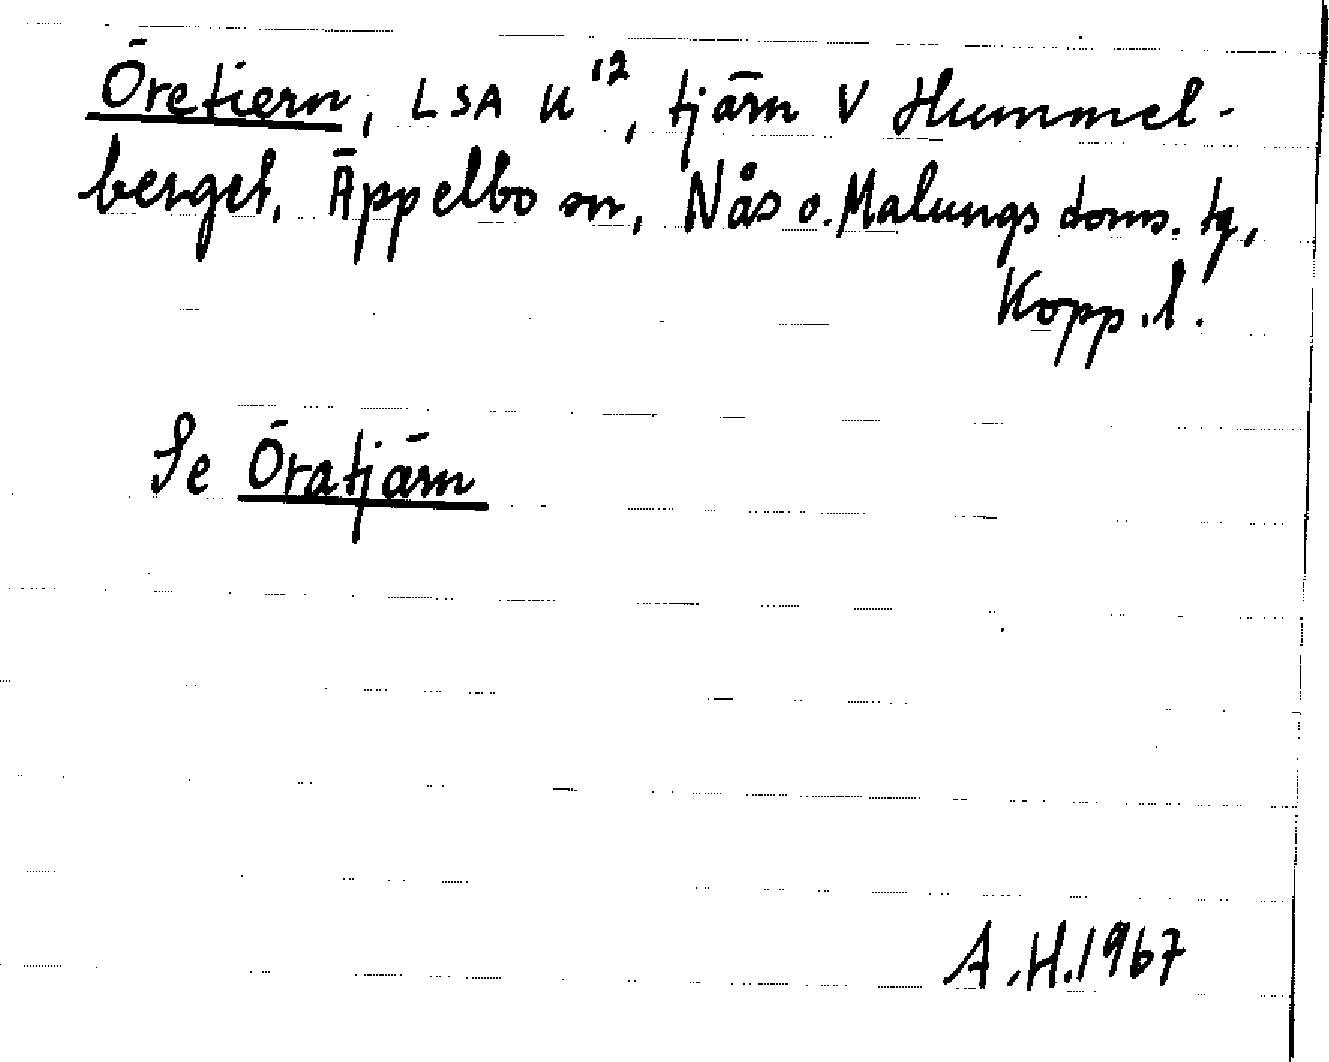 Öretiern, LSA U¹², tjärn V Hummel-
berget, Äppelbo sn, Nås o. Malungs doms. tg,
Kopp.l.
Se Öratjärn
A.H.1967